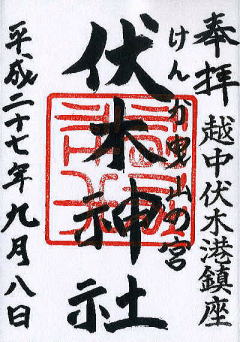 奉拝
越中伏木港鎮座
けんか曳山の宮
伏木神社
平成二十七年九月八日